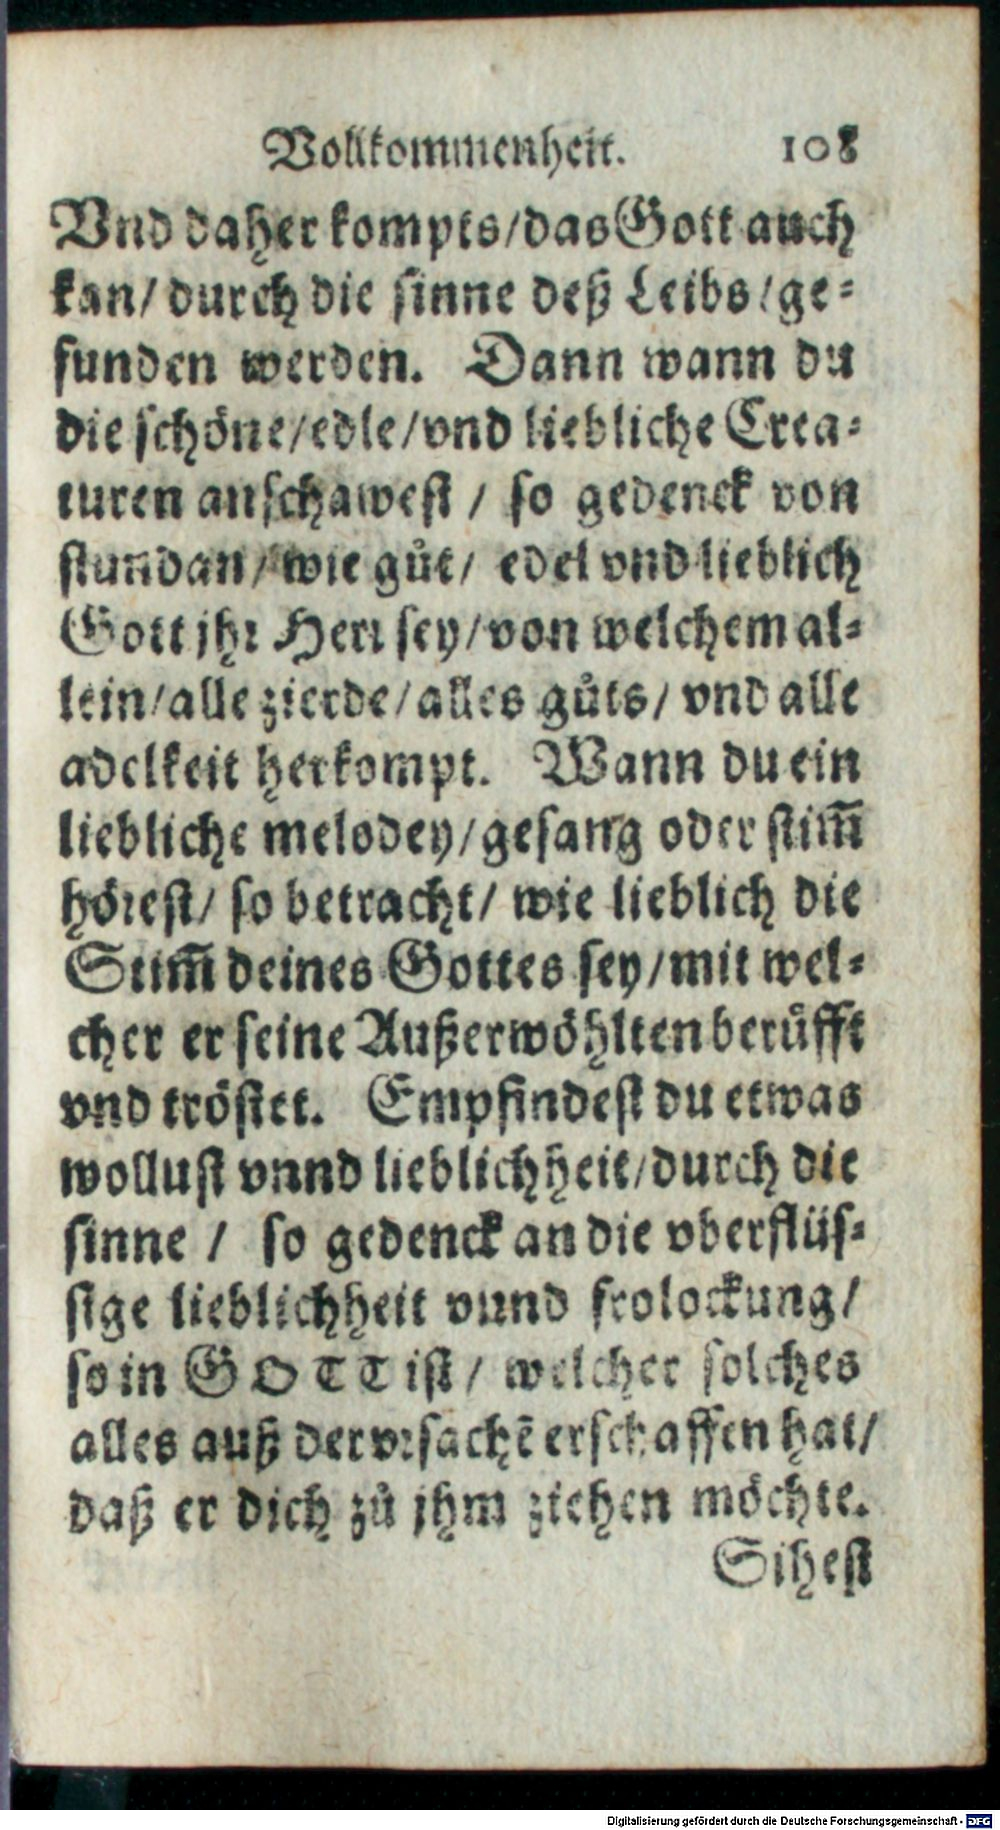 Vollkommenheit. 108
Vnd daher kompts/das Gott auch
kan/ durch die sinne deß Leibs/ge-
funden werden. Dann wann du
die schöne/edle/vnd liebliche Crea-
turen anschawest / so gedenck von
stundan/ wie gůt/ edel vnd lieblich
Gott jhr Herr sey/von welchem al-
lein/alle zierde/alles gůts/ vnd alle
adelkeit herkompt. Wann du ein
liebliche melodey/gesang oder stim̃
hörest/ so betracht/ wie lieblich die
Stim̃ deines Gottes sey/mit wel-
cher er seine Außerwöhlten berůfft
vnd tröstet. Empfindest du etwas
wollust vnnd lieblichheit/durch die
sinne / so gedenck an die vberflüs-
sige lieblichheit vnnd frolockung/
so in GOTT ist/ welcher solches
alles auß der vrsachẽ erschaffen hat/
daß er dich zů jhm ziehen möchte.
Sihest
Digitalisierung gefördert durch die Deutsche Forschungsgemeinschaft - DFG